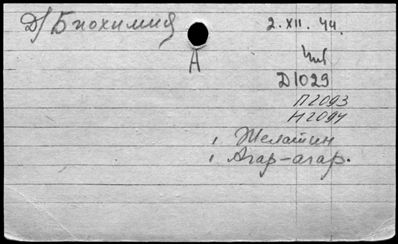 Д/ Биохимия
2. XII. 44.
А
Д1029
П2093
Н2094
Желатин
Агар-агар.